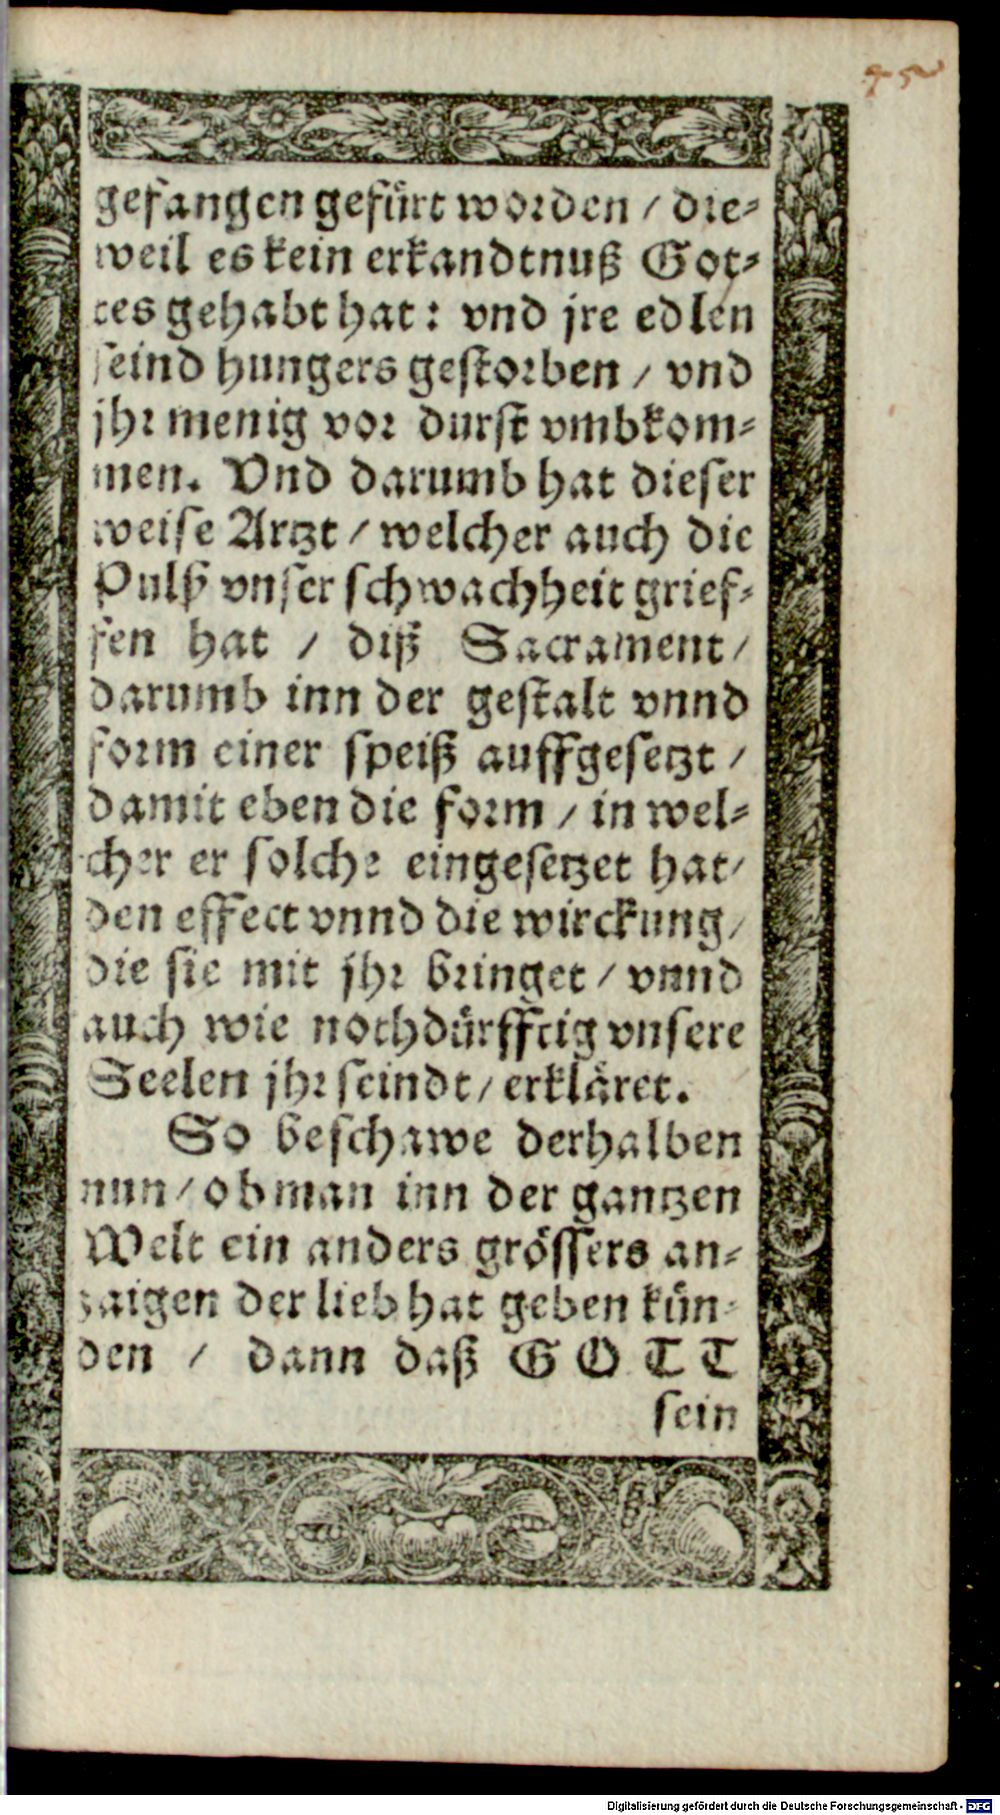 45
gefangen gefürt worden / die-
weil es kein erkandtnuß Got-
tes gehabt hat: vnd jre edlen
seind hungers gestorben / vnd
jhr menig vor durst vmbkom-
men. Vnd darumb hat dieser
weise Artzt / welcher auch die
Pulß vnser schwachheit grief-
fen hat / diß Sacrament /
darumb inn der gestalt vnnd
form einer speiß auffgesetzt /
damit eben die form / in wel-
cher er solche eingesetzet hat /
den effect vnnd die wirckung /
die sie mit jhr bringet / vnnd
auch wie nothdürfftig vnsere
Seelen jhr seindt / erkläret.
So beschawe derhalben
nun / ob man inn der gantzen
Welt ein anders grössers an-
zaigen der lieb hat geben kün-
den / dann daß GOTT
sein
Digitalisierung gefördert durch die Deutsche Forschungsgemeinschaft - DFG